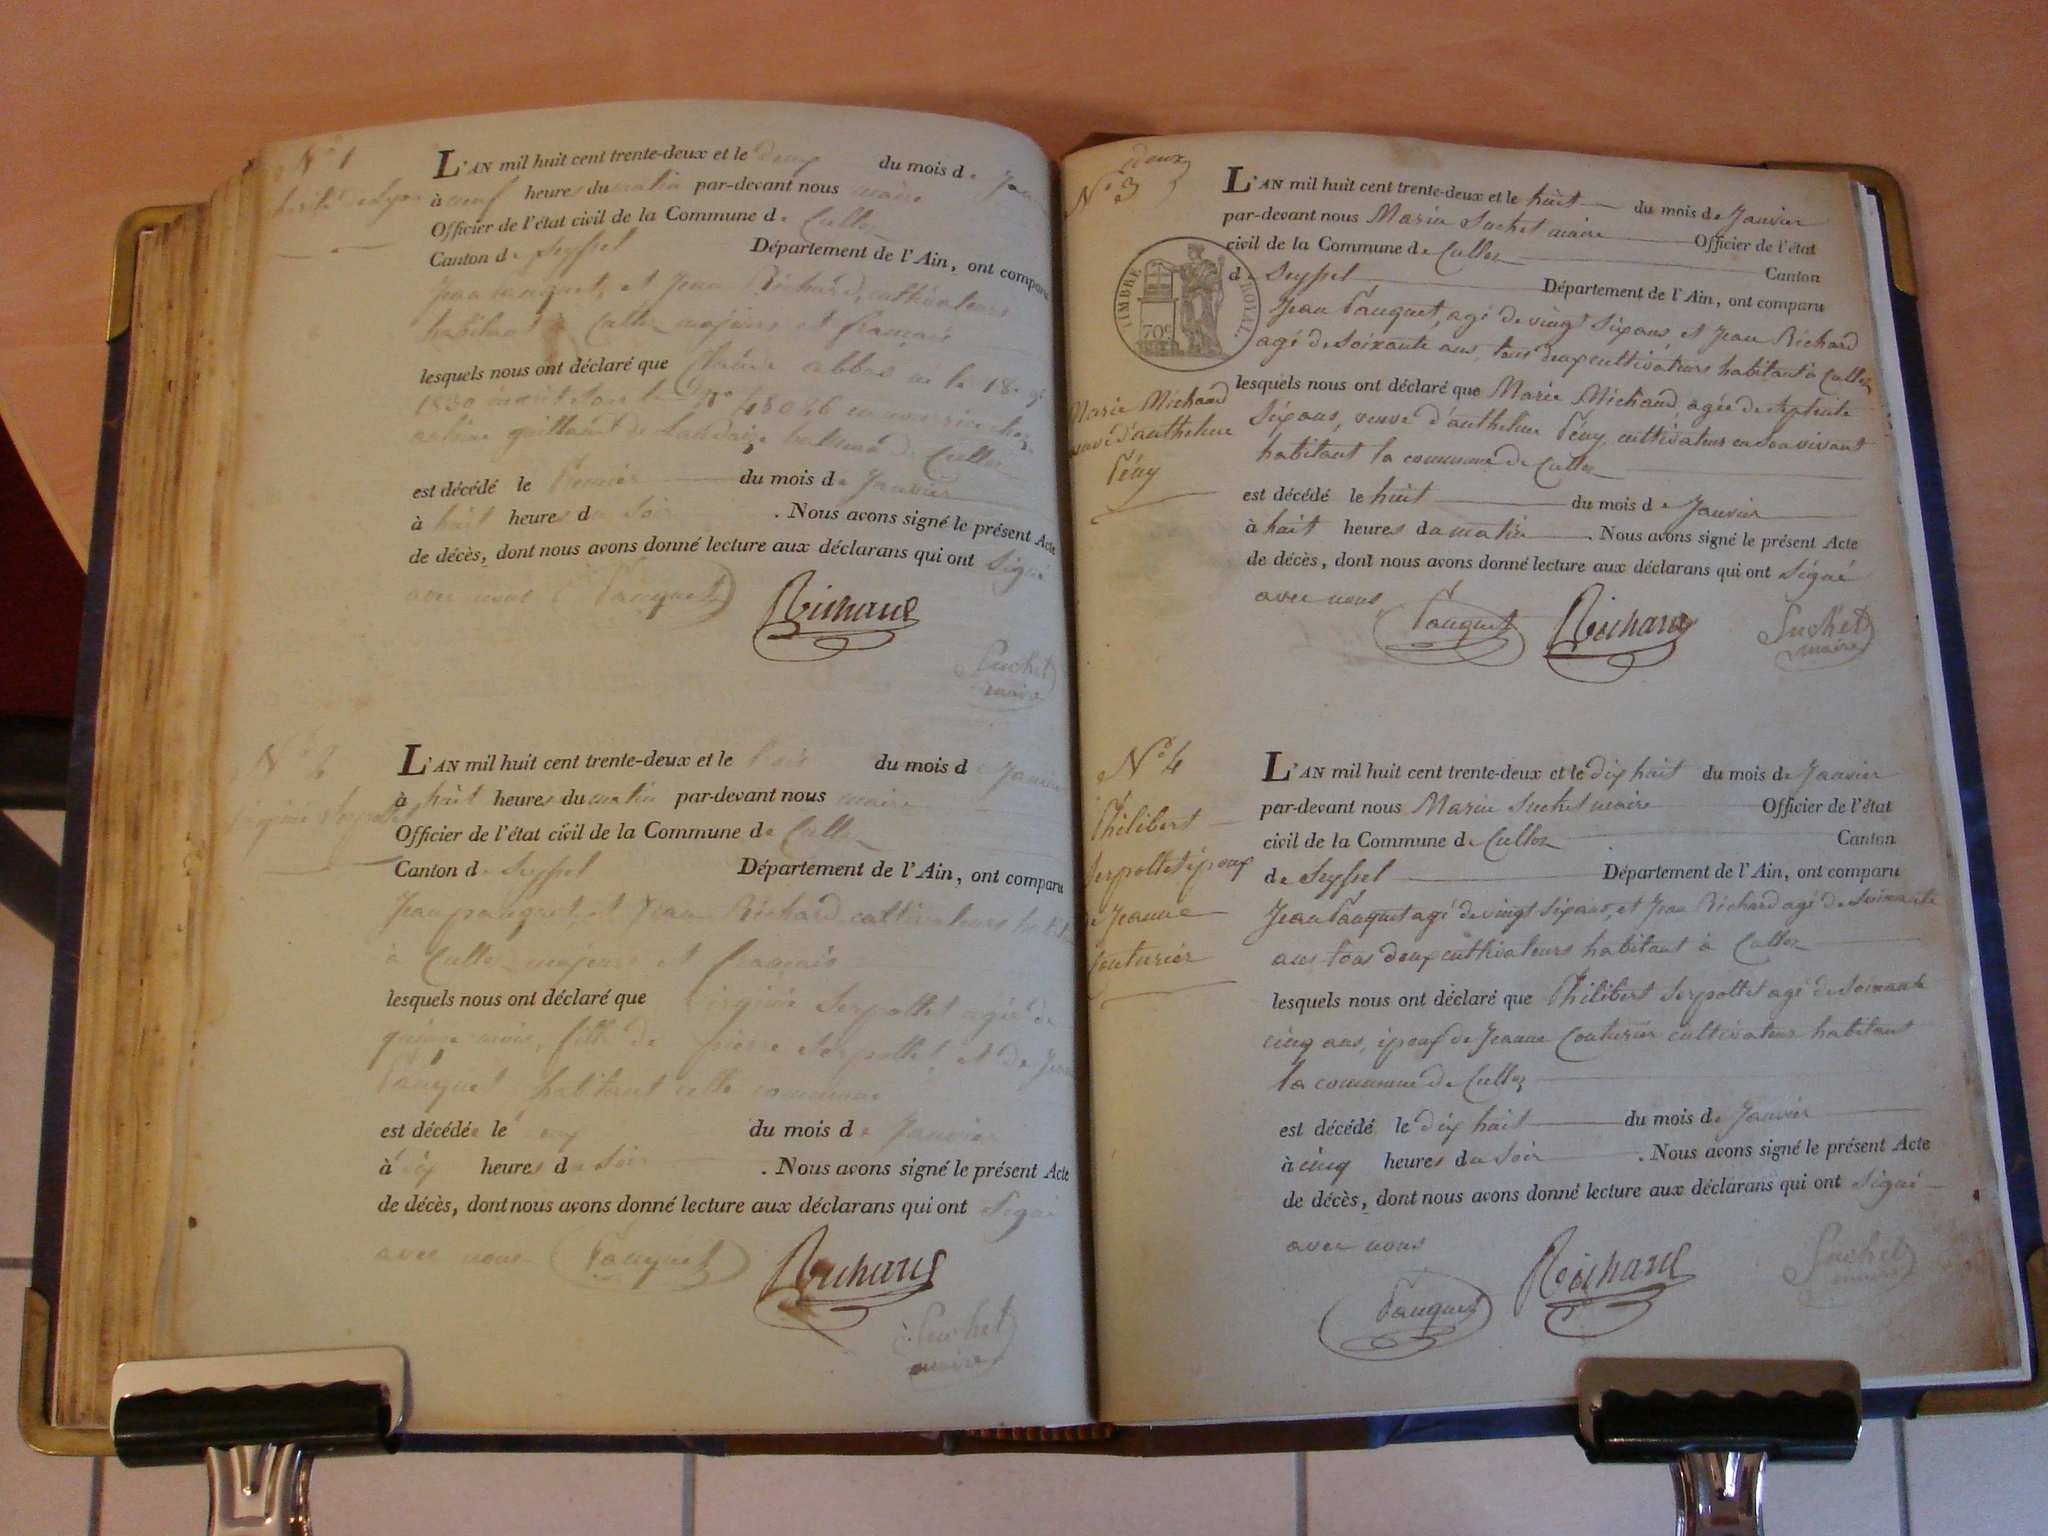 N° 1
L'AN mil huit cent trente-deux et le deux du mois de
à neuf heures du matin par-devant nous maire
Officier de l'état civil de la Commune de Culloz
Canton de Seyssel Département de l'Ain, ont comparu
Jean pauquet, et Jean Richard, cultivateurs
habitant à Culloz majeurs et français
lesquels nous ont déclaré que abbre né le 18
1830
de Culloz
est décédé le Premier du mois de Janvier
à huit heures du Soir . Nous avons signé le présent Acte
de décès, dont nous avons donné lecture aux déclarans qui ont Signé
avec nous Pauquet Richard
Suchet
maire
N° 2
L'AN mil huit cent trente-deux et le trois du mois de Janvier
à huit heures du matin par-devant nous maire
Officier de l'état civil de la Commune de Culloz
Canton de Seyssel Département de l'Ain, ont comparu
Jean pauquet, et Jean Richard cultivateurs
à Culloz majeurs et français
lesquels nous ont déclaré que virginie Serpollet agée de
quinze mois, fille de pierre Serpollet, et de
Pauquet habitant cette commune
est décédée le deux du mois de Janvier
à heures du Soir . Nous avons signé le présent Acte
de décès, dont nous avons donné lecture aux déclarans qui ont Signé
avec nous Pauquet Richard
Suchet
maire
deux
N° 3
L'AN mil huit cent trente-deux et le huit du mois de Janvier
par-devant nous Marin Suchet maire Officier de l'état
civil de la Commune de Culloz Canton
de Seyssel Département de l'Ain, ont comparu
TIMBRE ROYAL
70c
Jean Pauquet, agé de vingt six ans, et Jean Richard
agé de soixante ans, tous deux cultivateurs habitant à Culloz
Marie Michaud
veuve d'anthelme
Pény
lesquels nous ont déclaré que Marie Michaud, agée de septente
six ans, veuve d'anthelme Pény, cultivateur en son vivant
habitant la commune de Culloz
est décédé le huit du mois de Janvier
à huit heures du matin . Nous avons signé le présent Acte
de décès, dont nous avons donné lecture aux déclarans qui ont Signé
avec nous
Pauquet Richard Suchet
maire
N° 4
Philibert
Serpollet époux
de Jeanne
Couturier
L'AN mil huit cent trente-deux et le dix huit du mois de Janvier
par-devant nous Marin Suchet maire Officier de l'état
civil de la Commune de Culloz Canton
de Seyssel Département de l'Ain, ont comparu
Jean Pauquet agé de vingt six ans, et Jean Richard agé de Soixante
ans tous deux cultivateurs habitant à Culloz
lesquels nous ont déclaré que Philibert Serpollet agé de Soixante
cinq ans, époux de Jeanne Couturier cultivateur habitant
la commune de Culloz
est décédé le dix huit du mois de Janvier
à cinq heures du Soir . Nous avons signé le présent Acte
de décès, dont nous avons donné lecture aux déclarans qui ont Signé
avec nous
Pauquet Richard Suchet
maire